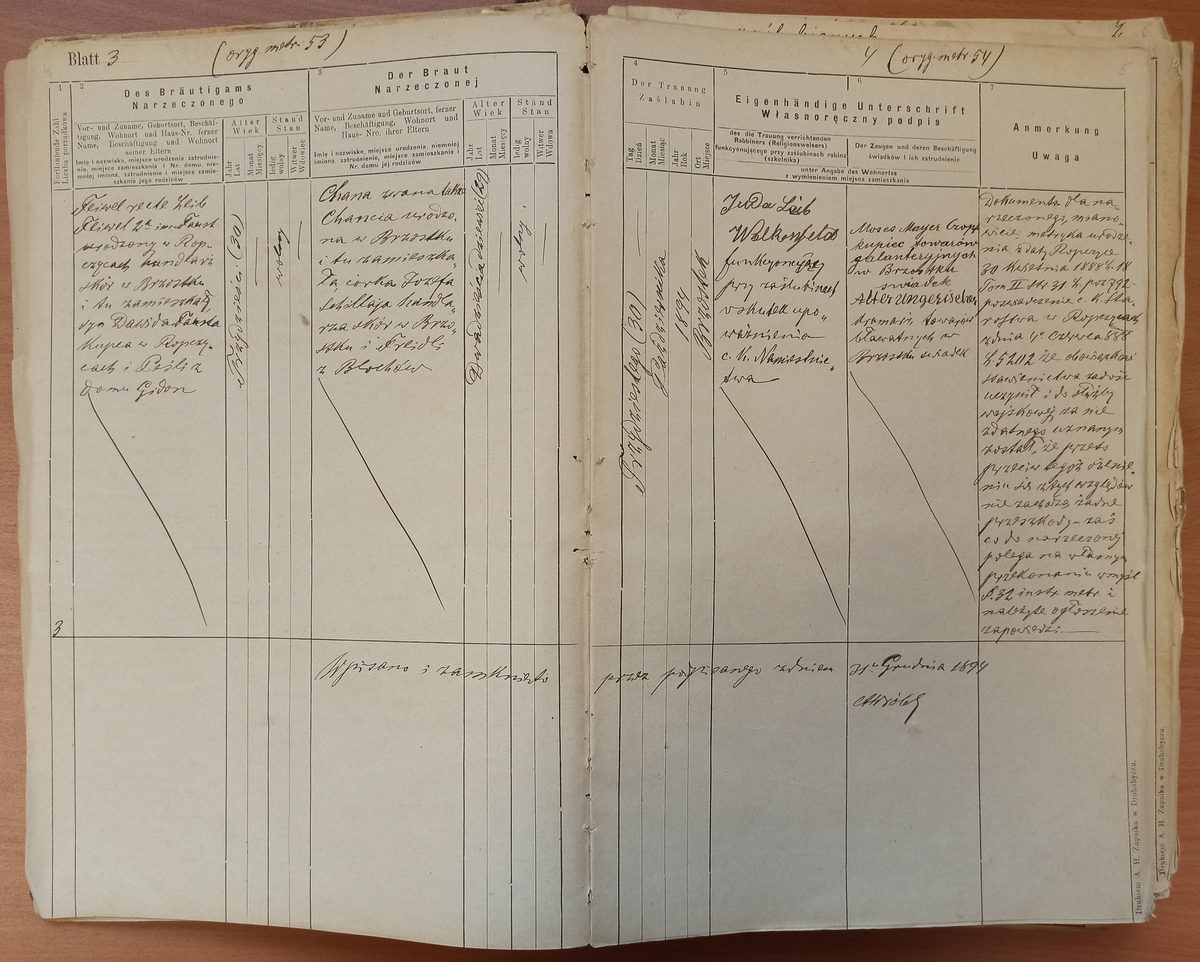 Blatt 3
(oryg. metr. 53)
1
2
Fortlaufende Zahl
Liczba porządkowa
Des Bräutigams
Narzeczonego
Vor- und Zuname, Geburtsort, Beschäf-
tigung, Wohnort und Haus-Nr. ferner
Name, Beschäftigung und Wohnort
seiner Eltern
Imię i nazwisko, miejsce urodzenia, zatrudnie-
nie, miejsce zamieszkania i Nr. domu, nie-
mniej imiona, zatrudnienie i miejsce zamie-
szkania jego rodziców
Alter
Wiek
Jahr
Lat
Monat
Miesięcy
Stand
Stan
ledig
wolny
Witwer
Wdowiec
3
Der Braut
Narzeczonej
Vor- und Zuname und Geburtsort, ferner
Name, Beschäftigung, Wohnort und
Haus- Nro. ihrer Eltern
Imię i nazwisko, miejsce urodzenia, niemniej
imiona, zatrudnienie, miejsce zamieszkania i
Nr. domu jej rodziców
Alter
Wiek
Jahr
Lat
Monat
Miesięcy
Stand
Stan
ledig
wolny
Witwer
Wdowa
3
Feiwel recte Leib
Feiwel 2a im. Faust
urodzony w Rop-
czycach handlarz
skór w Brzostku
i tu zamieszkały
syn Dawida Fausta
Kupca w Ropczy-
cach i Peśli z
domu Gidon
Trzydzieści (30)
wolny
Chana zwana także
Chancia urodzo-
na w Brzostku
i tu zamieszka-
ła córka Józefa
handla-
rza skór w Brzo-
stku i Freidli
z Blochów
wolny
4 (oryg. metr 54)
2
5
4
Der Trauung
Zaślubin
Tag
Dzień
Monat
Miesiąc
Jahr
Rok
Ort
Miejsce
5
6
Eigenhändige Unterschrift
Własnoręczny podpis
des die Trauung verrichtenden
Rabbiners (Religionsweisers)
funkcyonującego przy zaślubinach rabina
(szkolnika)
Der Zeugen und deren Beschäftigung
świadków i ich zatrudnienie
unter Angabe des Wohnortes
z wymienieniem miejsca zamieszkania
7
Anmerkung
Uwaga
Trzydziestego (30)
Października
1894
Brzostek
Juda Leib
Walkenfeld
funkcyonujący
przy zaślubinach
wskutek upo-
ważnienia
c. K. Namiestnic-
twa
Moses Mayer
kupiec towarów
galanteryjnych
w Brzostku
świadek
Alter Ungeriseher
kramarz towarów
bławatnych w
Brzostku świadek
Dokumenta dla na-
rzeczonego, miano-
wicie metryka urodze-
nia z daty Ropczyce
30 Kwietnia 1888
Tom II str 31 L. p.
poświadczenie c. K. Sta-
rostwa w Ropczycach
z dnia 4go Czerwca 1888
L. 5202 że obowiązkowi
stawiennictwa zadość
uczynił i do służby
wojskowej za nie
zdatnego uznanym
został, że przeto
przeciw tegoż ożenie-
niu się z tych względów
nie zachodzą żadne
przeszkody – zaś
co do narzeczonej
polega na własnym
przekonaniu w myśl
§. 32 instr. metr. i
należyte ogłoszenie
zapowiedzi. —
Wpisano i zamknięto przez podpisanego z dniem 31go Grudnia 1894
Drukiem A. H. Żupnika w Drohobyczu.
Drukiem A. H. Żupnika w Drohobyczu.